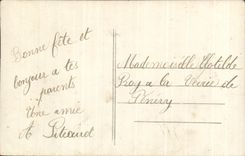 Bonne fête et
bonjour a tes
parents
Une amie
A
Mademoiselle Clotilde
Roy a la Voirie de